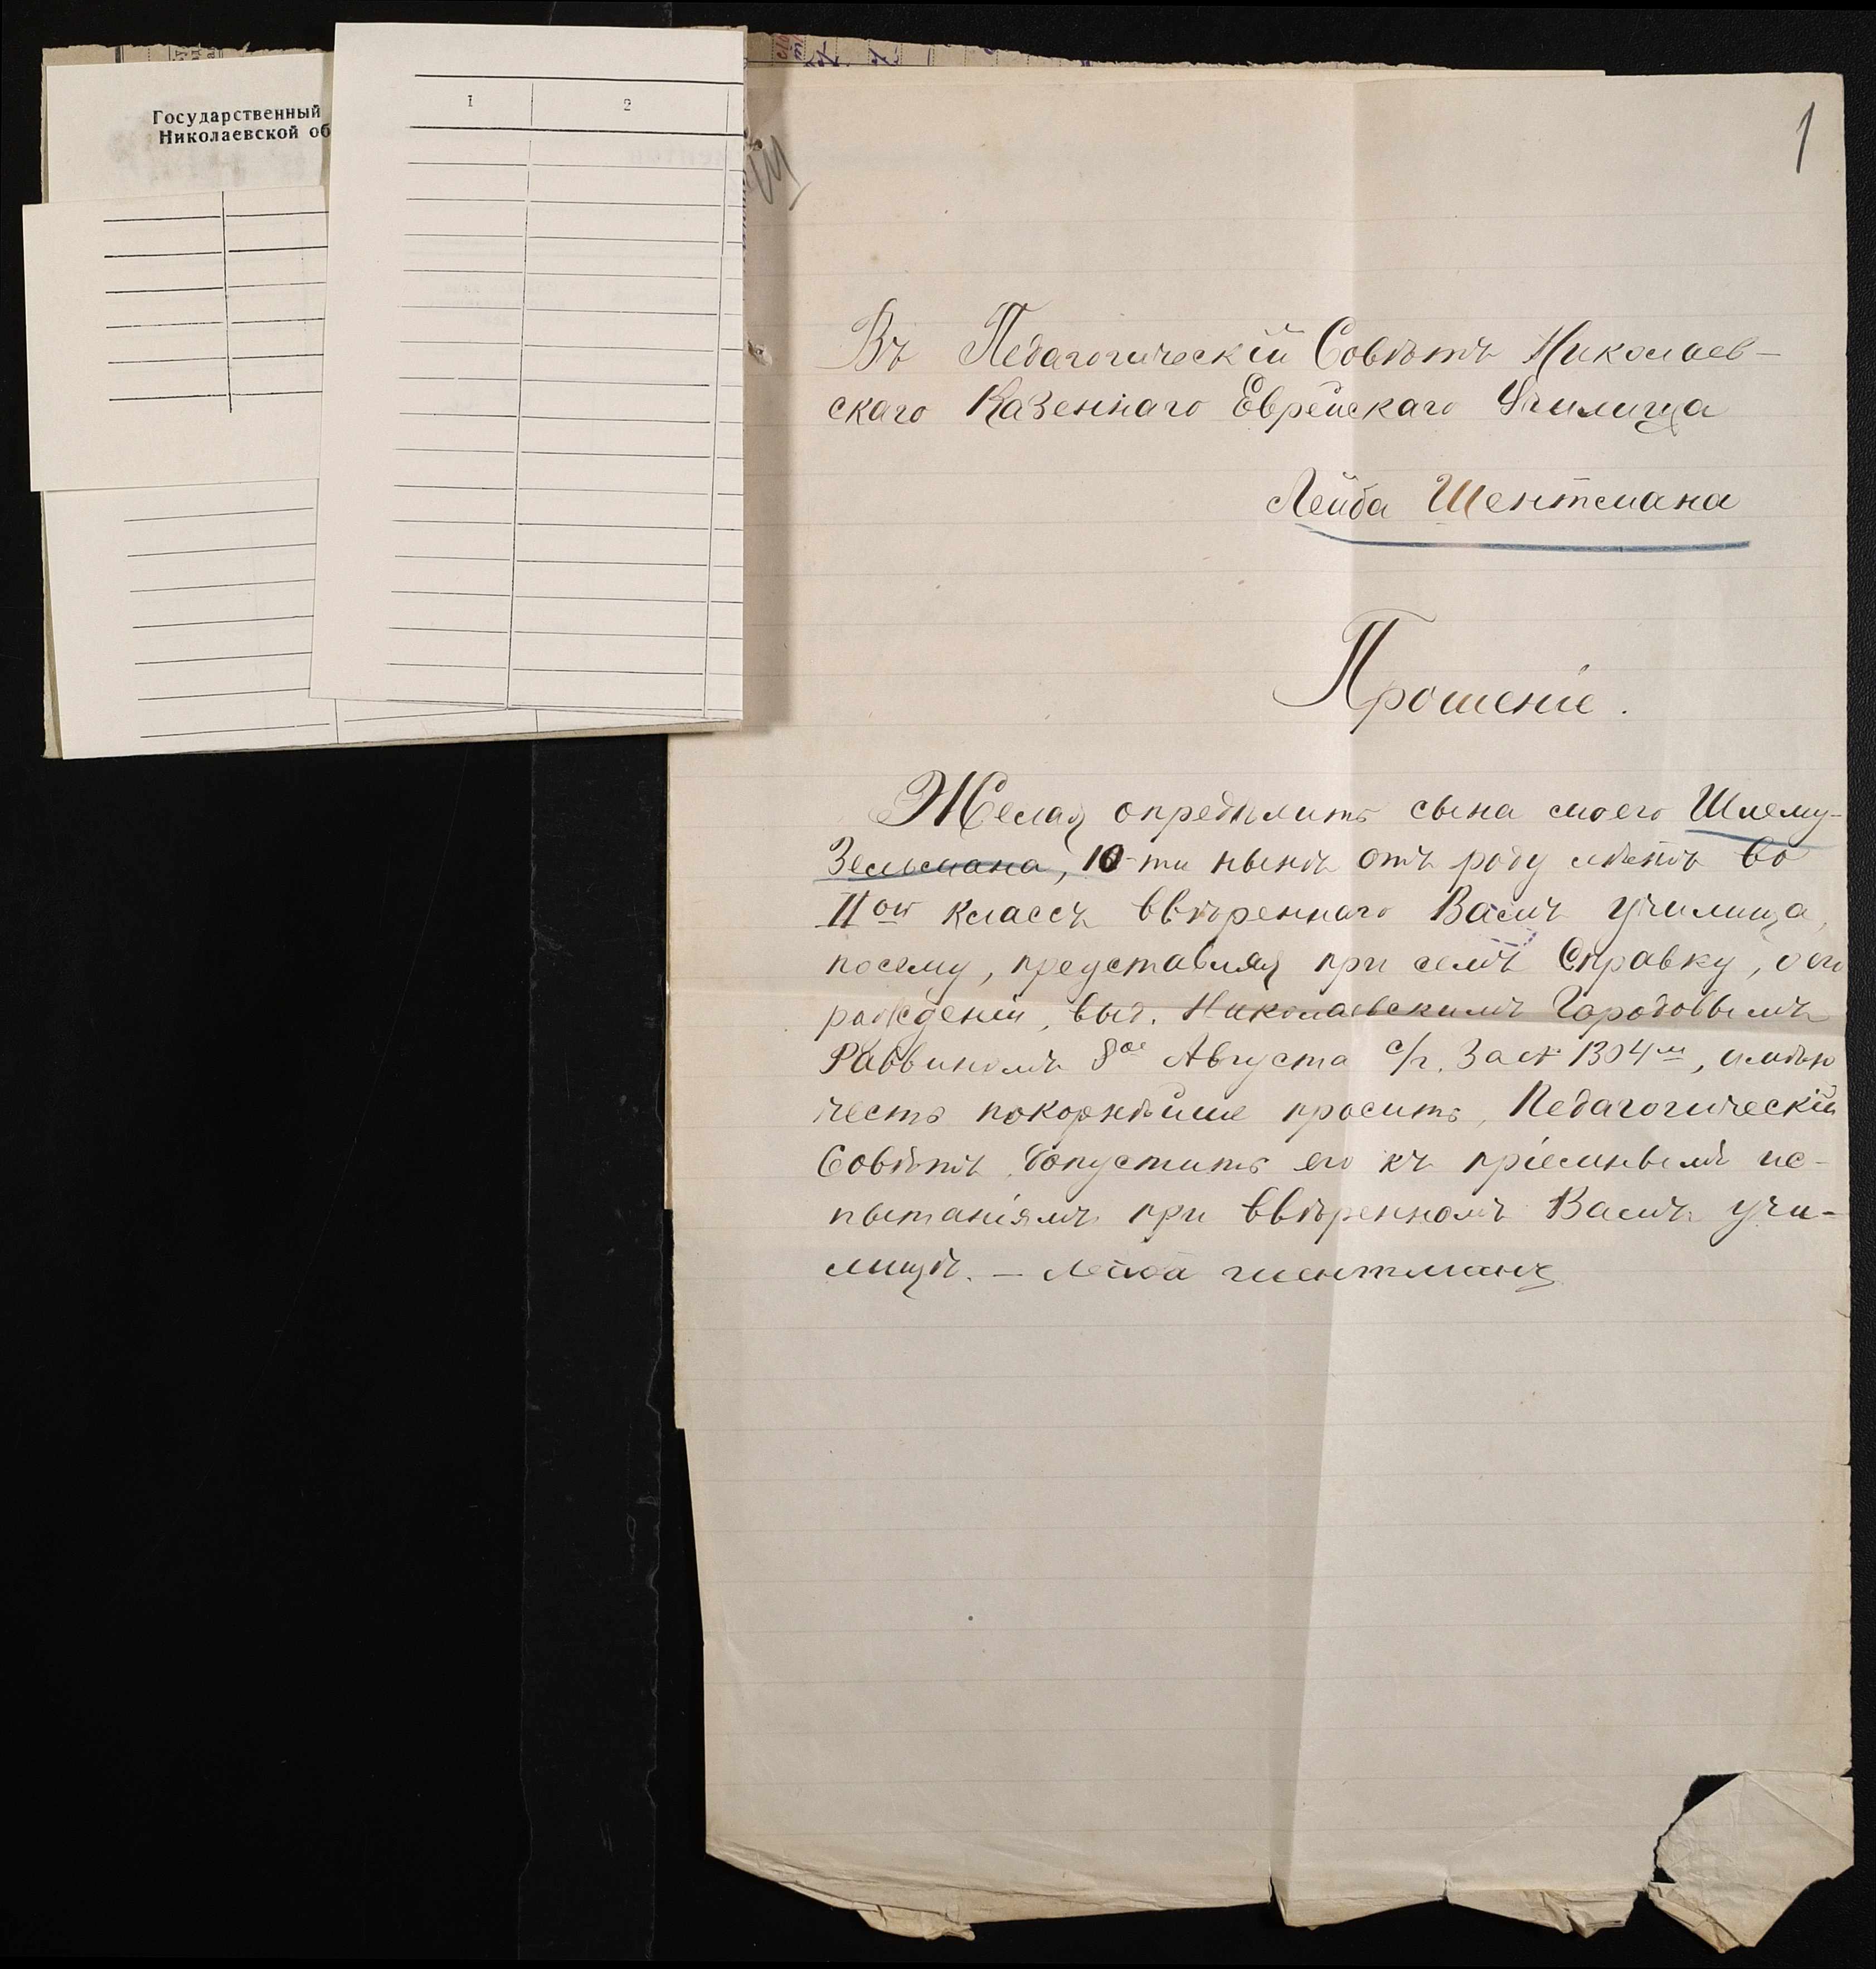 Государственный
Николаевской об
1 2
1
Въ Педагогическій Совѣтъ Николаев-
скаго Казеннаго Еврейскаго Училища
Лейба Шентмана
Прошеніе.
Желая опредѣлить сына моего Шлему-
Зельмана, 10-ти нынѣ отъ роду лѣтъ во
IIой классъ ввѣреннаго Вамъ училища,
посему, представляя при семъ Справку, о его
рожденіи, выд. Николаевскимъ Городовымъ
Раввиномъ 8ое Августа с/г. За № 1304м, имѣю
честь покорнѣйше просить, Педагогическій
Совѣтъ допустить его къ пріемнымъ ис-
пытаніямъ при ввѣренномъ Вамъ учи-
лищѣ. — Лейба шентманъ